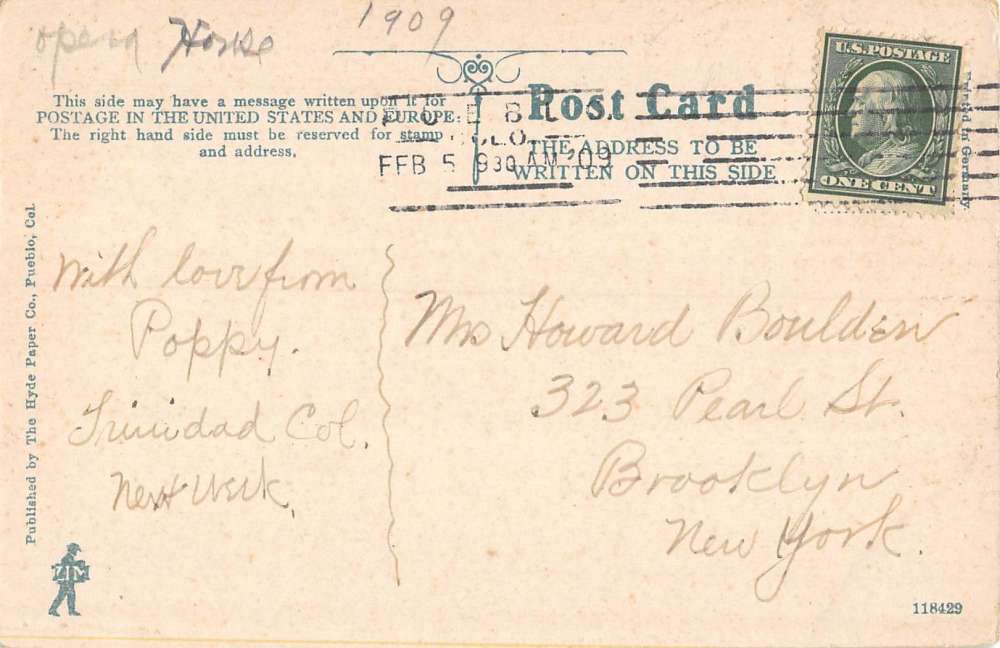 1909
opera House
This side may have a message written upon it for
POSTAGE IN THE UNITED STATES AND EUROPE:
The right hand side must be reserved for stamp
and address.
Post Card
THE ADDRESS TO BE
WRITTEN ON THIS SIDE
U.S. POSTAGE
ONE CENT
Printed in Germany.
FEB 5 930 AM '09
With love from
Poppy.
Trinidad Col.
Next week.
Mrs Howard Boulden
323 Pearl St.
Brooklyn
New York.
Published by The Hyde Paper Co., Pueblo, Col.
118429